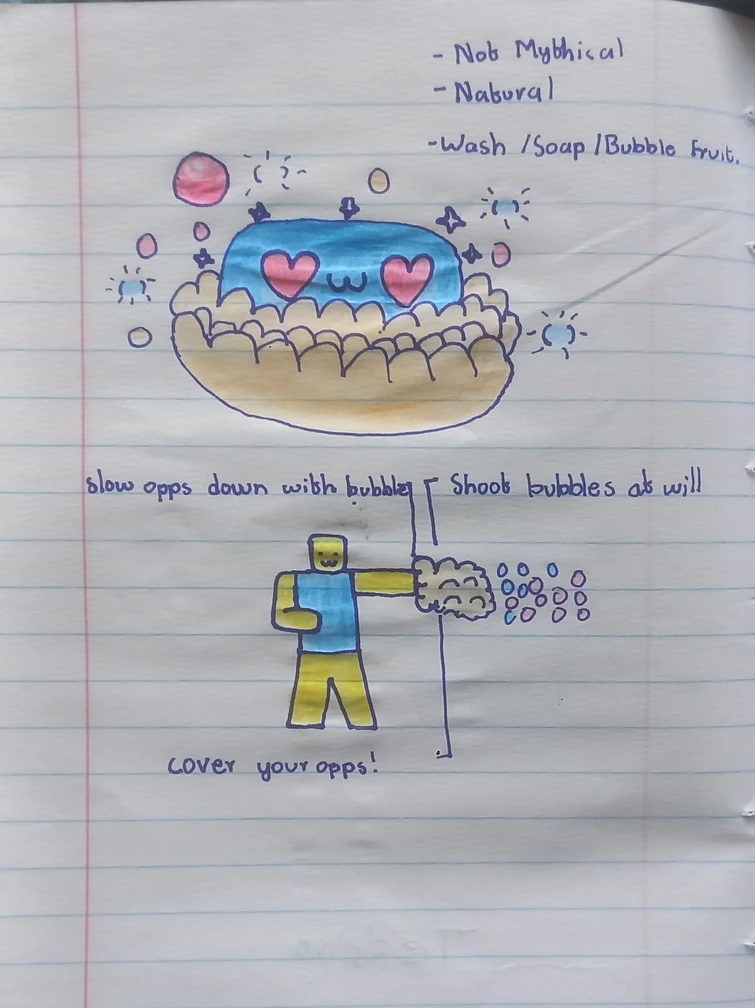 - Not Mythical
- Natural
- Wash /Soap /Bubble Fruit.
slow opps down with bubbles
Shoot bubbles at will
cover your opps!